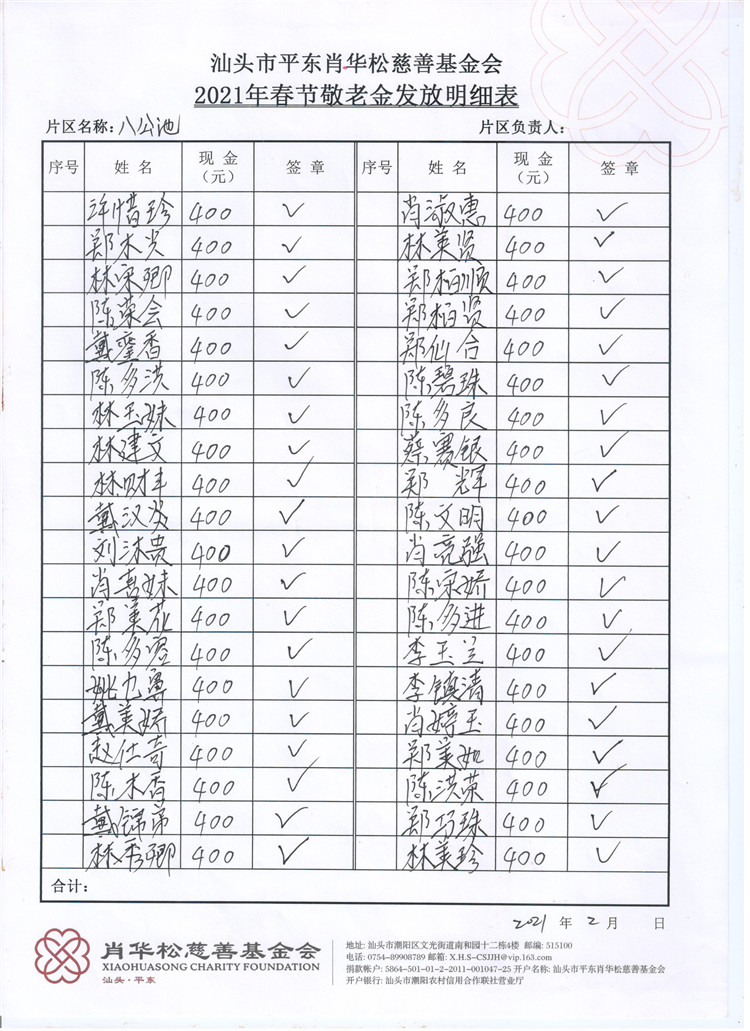 汕头市平东肖华松慈善基金会
2021年春节敬老金发放明细表
片区名称：八公池 片区负责人：
序号 姓名 现金（元） 签章 序号 姓名 现金（元） 签章
许惜珍 400 ✓ 肖淑惠 400 ✓
郑木炎 400 ✓ 林美贤 400 ✓
林宋卿 400 ✓ 郑柏顺 400 ✓
陈荣会 400 ✓ 郑柏贤 400 ✓
戴銮香 400 ✓ 郑仙合 400 ✓
陈多洪 400 ✓ 陈碧珠 400 ✓
林玉妹 400 ✓ 陈多良 400 ✓
林建文 400 ✓ 蔡赛银 400 ✓
林财丰 400 ✓ 郑辉 400 ✓
戴汉炎 400 ✓ 陈文明 400 ✓
刘沐贵 400 ✓ 肖亮强 400 ✓
肖喜妹 400 ✓ 陈宋娇 400 ✓
郑美花 400 ✓ 陈多进 400 ✓
陈多 400 ✓ 李玉兰 400 ✓
姚 400 ✓ 李镇清 400 ✓
戴美娇 400 ✓ 肖婷玉 400 ✓
赵仕奇 400 ✓ 郑美如 400 ✓
陈木香 400 ✓ 陈洪荣 400 ✓
戴锦 400 ✓ 郑巧珠 400 ✓
林秀卿 400 ✓ 林美珍 400 ✓
合计：
2021 年 2 月 日
肖华松慈善基金会
XIAOHUASONG CHARITY FOUNDATION
汕头·平东
地址: 汕头市潮阳区文光街道南和园十二栋4楼 邮编: 515100
电话: 0754-89908789 邮箱: X.H.S-CSJJH@vip.163.com
捐款帐户: 5864-501-01-2-2011-001047-25 开户名称: 汕头市平东肖华松慈善基金会
开户银行: 汕头市潮阳农村信用合作联社营业厅